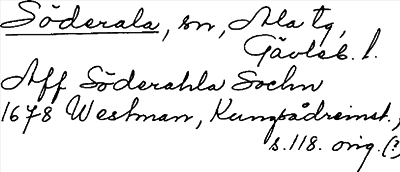 Söderala, sn, Ala tg,
Gävleb. l.
Aff Söderahla Sochn
1678 Westman, Kungsådreinst.,
s.118. orig. (?)